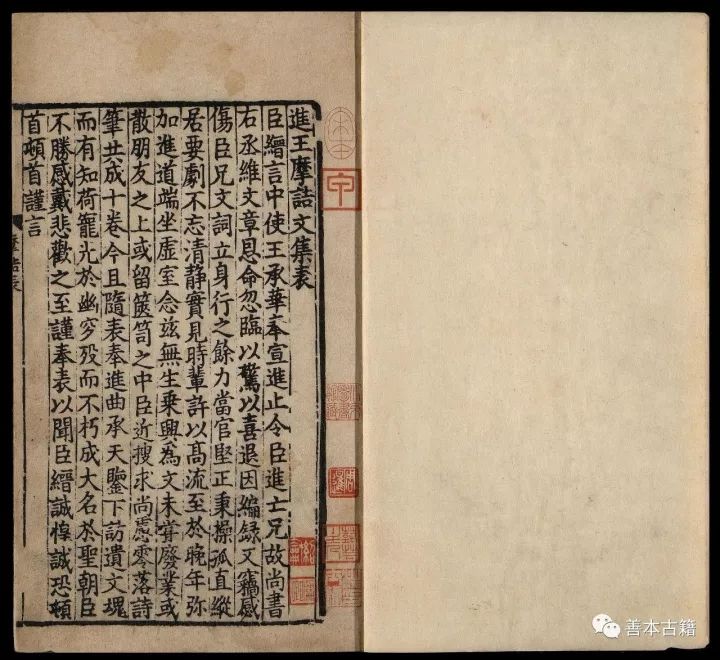 進王摩詰文集表
臣縉言中使王承華奉宣進止令臣進亡兄故尚書
右丞維文章恩命忽臨以驚以喜退因編錄又竊感
傷臣兄文詞立身行之餘力當官堅正秉操孤直縱
居要劇不忘清静實見時輩許以髙流至於晚年弥
加進道端坐虛室念兹無生乗興為文未甞廢業或
散朋友之上或留篋笥之中臣近搜求尚慮零落詩
筆共成十卷今且隨表奉進曲承天鑒下訪遺文魂
而有知荷寵光於幽穸殁而不朽成大名於聖朝臣
不勝感戴悲歡之至謹奉表以聞臣縉誠惶誠恐頓
首頓首謹言
摩詰表
善本古籍